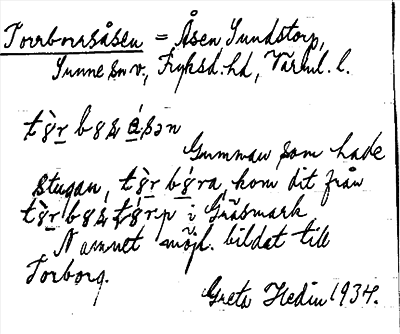 Torrborrsåsen = Åsen Sundstorp,
Sunne sn v., Fryksd. hd, Värml. l.
Gumman som hade
stugan, kom dit från
i Gräsmark
Namnet möjl. bildat till
Torborg.
Greta Hedin 1934.